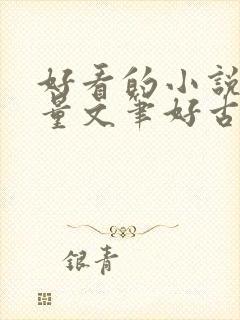 好看的小說
量文筆好古
銀青